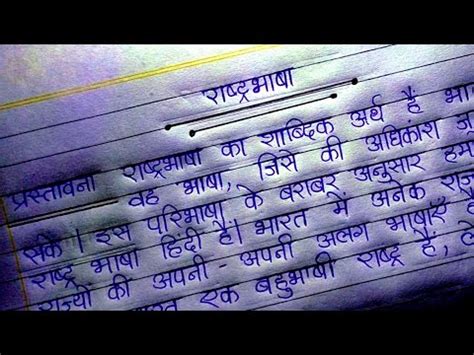 राष्ट्रभाषा
प्रस्तावना राष्ट्रभाषा का शाब्दिक अर्थ है
वह भाषा, जिसे की अधिकांश
सके। इस परिभाषा के बराबर अनुसार
राष्ट्र भाषा हिंदी है। भारत में अनेक
राज्यों की अपनी - अपनी अलग भाषाएँ
एक बहुभाषी राष्ट्र है,